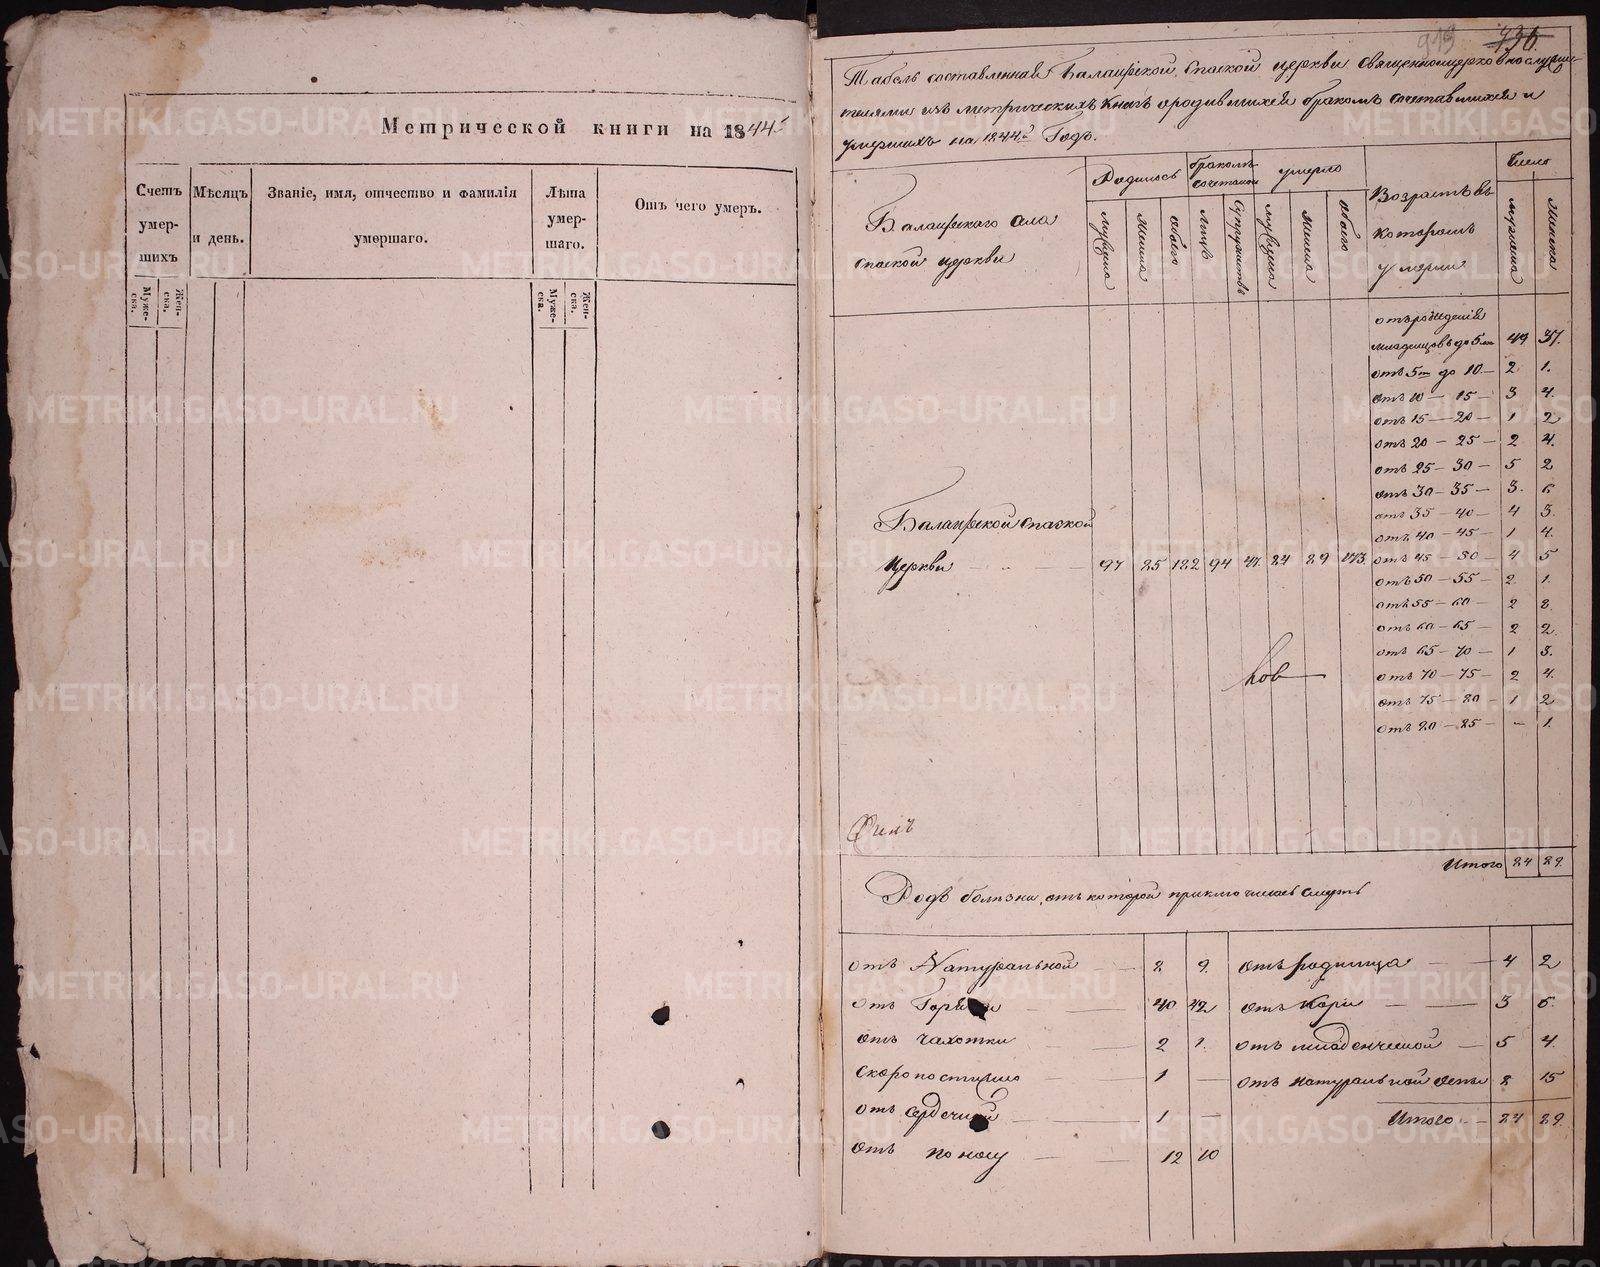 Метрической книги на 1844
Счетъ умер- шихъ
Мѣсяцъ и день.
Званіе, имя, отчество и фамилія умершаго.
Лѣта умер- шаго.
Отъ чего умеръ.
Муже- ска.
Жен- ска.
Муже- ска.
Жен- ска.
919 436
Табель составленная Балаирской Спаской церкви священноцерковнослужи-
телями изъ метрическихъ книгъ ородившихся бракомъ сочетавшихся и
умершихъ на 1844й Годъ.
Балаирскаго села
спаской церкви
Родилось
бракомъ сочеталось
умерло
Возрастъ въ
которомъ
умерли
Число
мужеска
женска
отъ рожденія
младенцовъ до 5 ти 49 37.
отъ 5ти до 10 — 2 1.
отъ 10 — 15 — 3 4.
отъ 15 — 20 — 1 2
отъ 20 — 25 — 2 4.
отъ 25 — 30 — 5 2
отъ 30 — 35 — 3. 6
отъ 35 — 40 — 4 3.
отъ 40 — 45 — 1 4.
отъ 45 — 50 — 4 5
отъ 50 — 55 — 2 1.
отъ 55 — 60 — 2 8.
отъ 60 — 65 — 2 2.
отъ 65 — 70 — 1 3.
отъ 70 — 75 — 2 4.
отъ 75 — 80 1 2
отъ 80 — 85 — - 1.
Балаирской спаской
церкви — 97 85 182 94 47. 84 89 173.
Итого 84 89.
Родъ болезни, отъ которой приключилась смерть
отъ Натуральной — 8 9.
отъ Горячки — 40 42
отъ чахотки 2 1.
скоропостижно — 1 —
отъ сердечной — 1 —
отъ поносу — 12 10
отъ родимца — 4 2
отъ Кори — 3 6.
отъ младенческой — 5 4.
отъ натуральной оспы 8 15
Итого — 84 89.
METRIKI.GASO-URAL.RU